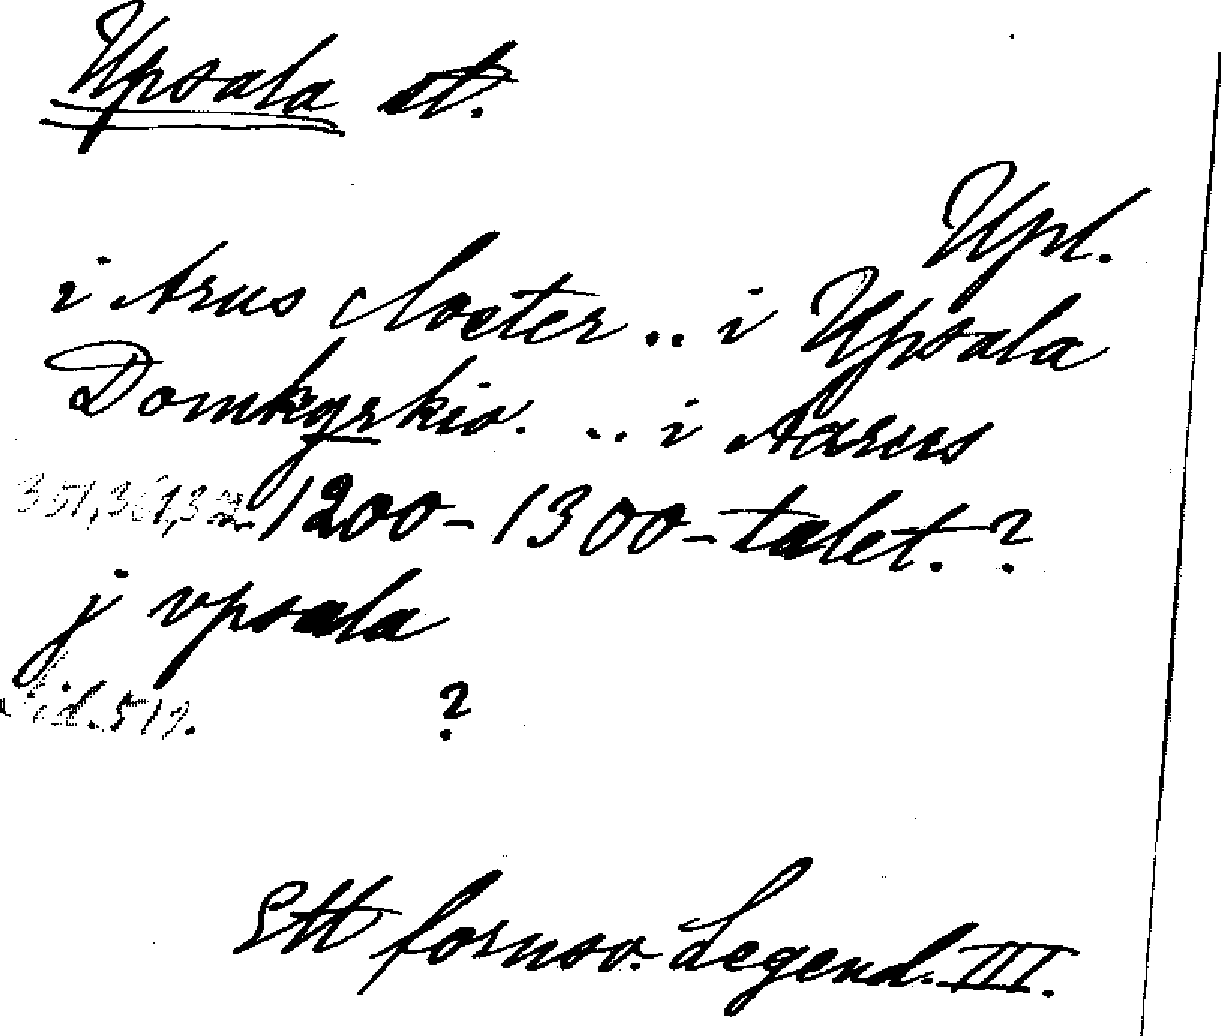 Upsala st.
Upl.
i Arus closter .. i Upsala
Domkyrkio. ... i Aarus
351, 361, 1200-1300-talet. ?
j vpsala
id. 517. ?
Ett fornsv. Legend. III.